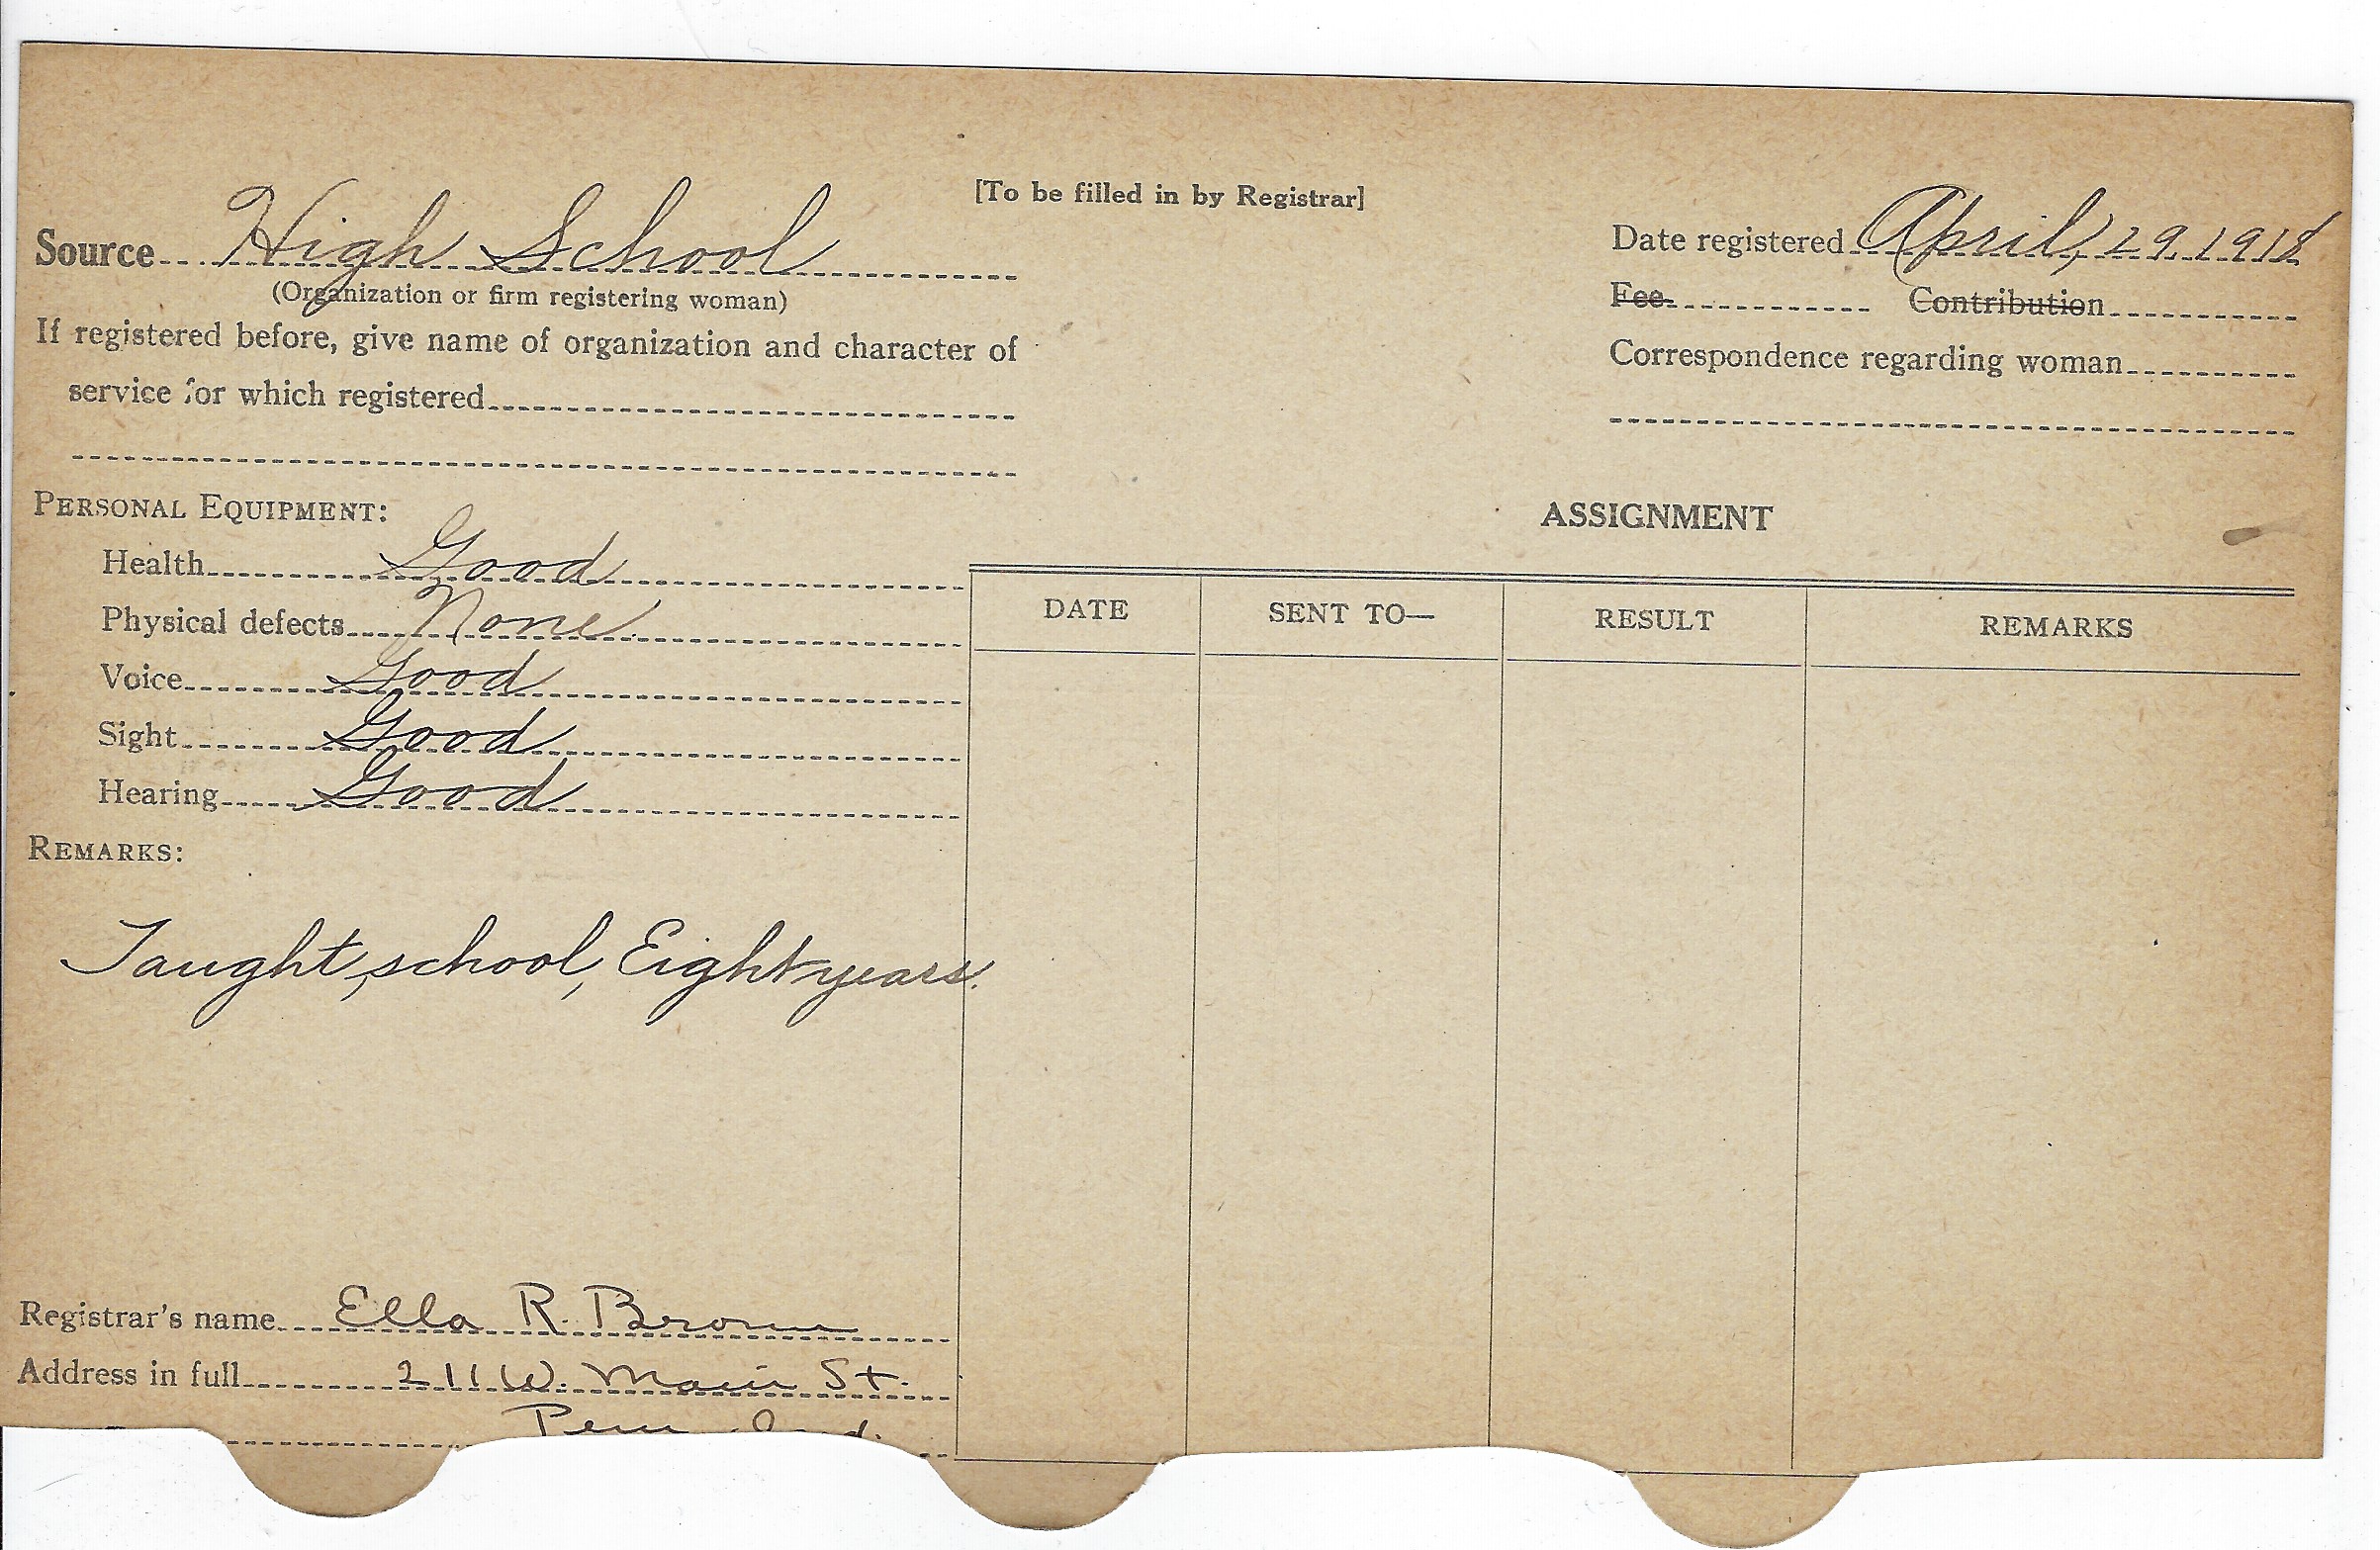 [To be filled in by Registrar]
Source High School
(Organization or firm registering woman)
If registered before, give name of organization and character of
service for which registered
Date registered April, 29, 1918
Fee Contribution
Correspondence regarding woman
PERSONAL EQUIPMENT:
Health Good
Physical defects None.
Voice Good
Sight Good
Hearing Good
REMARKS:
Taught, school, Eight years.
ASSIGNMENT
DATE SENT TO— RESULT REMARKS
Registrar's name Ella R. Brown
Address in full 211 W. Main St.
Peru Ind.